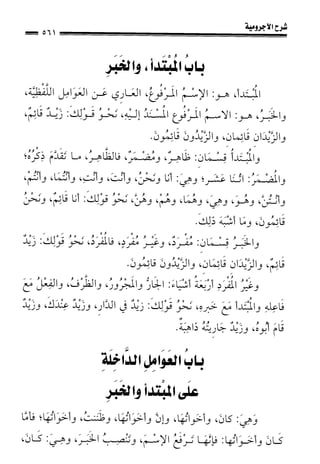 شرح الآجرومية
٥٦١
بَابُ المُبْتَدأ، والخَبَرِ
المُبْتَدأ، هـو: الإسْـمُ المَـرْفُوعُ، العَـارِي عَـنِ العَوامِلِ اللَّفْظِيَّةِ،
والخَبَـرُ، هـو: الاسـمُ المَـرْفُوع المُسْـنَدُ إليْـهِ، نَحْـوُ قَـوْلِكَ: زَيْـدٌ قَائِمٌ،
والزَّيْدَانِ قَائِمانِ، والزَّيْدُونَ قَائِمُونَ.
والمُبْتَـدأ قِسْـمَانِ: ظَاهِـرٌ، ومُضْمَـرٌ، فالظَّاهِـرُ، مـا تَقَدَّمَ ذِكْرُهُ؛
والمُضْمَـرُ: اثْنَـا عَشَـرَ؛ وهِيَ: أنَا ونَحْنُ، وأنْتَ، وأنْتِ، وأنْتُمَا، وأنْتُمْ،
وأنْتُـنَّ، وهُـوَ، وهِيَ، وهُمَا، وهُمْ، وهُنَّ، نَحْوُ قَوْلِكَ: أنا قَائِمٌ، ونَحْنُ
قَائِمُونَ، ومَا أشْبَهَ ذَلِكَ.
والخَبَـرُ قِسْـمَانِ: مُفْـرَدٌ، وغَيْـرُ مُفْـرَدٍ، فَالمُفْـرَدُ، نَحْـوُ قَوْلِكَ: زَيْدٌ
قَائِمٌ، والزَّيْدَانِ قَائِمَانِ، والزَّيْدُونَ قَائِمُونَ.
وغَيْرُ المُفْرَدِ أرْبَعَةُ أشْيَاءَ: الجَارُّ والمَجْرُورُ، والظَّرْفُ، والفِعْلُ مَعَ
فَاعِلِهِ والمُبْتَدأ مَعَ خَبَرِهِ، نَحْوُ قَوْلِكَ: زَيْدٌ فِي الدَّارِ، وزَيْدٌ عِنْدَكَ، وزَيْدٌ
قَامَ أبُوهُ، وزَيْدٌ جَارِيَتُهُ ذَاهِبَةٌ.
بَابُ العَوَامِلِ الدَّاخِلَةِ
عَلَى المُبْتَدأ والخَبَرِ
وَهِيَ: كانَ، وأخَواتُهَا، وإنَّ وأخَوَاتُهَا، وظَنَنتُ، وأخَوَاتُهَا؛ فأمَّا
كَـانَ وأخَـوَاتُها: فإنَّهَـا تَـرْفَعُ الإسْـمَ، وتَنْصِـبُ الخَبَـرَ، وهِـيَ: كَـانَ،